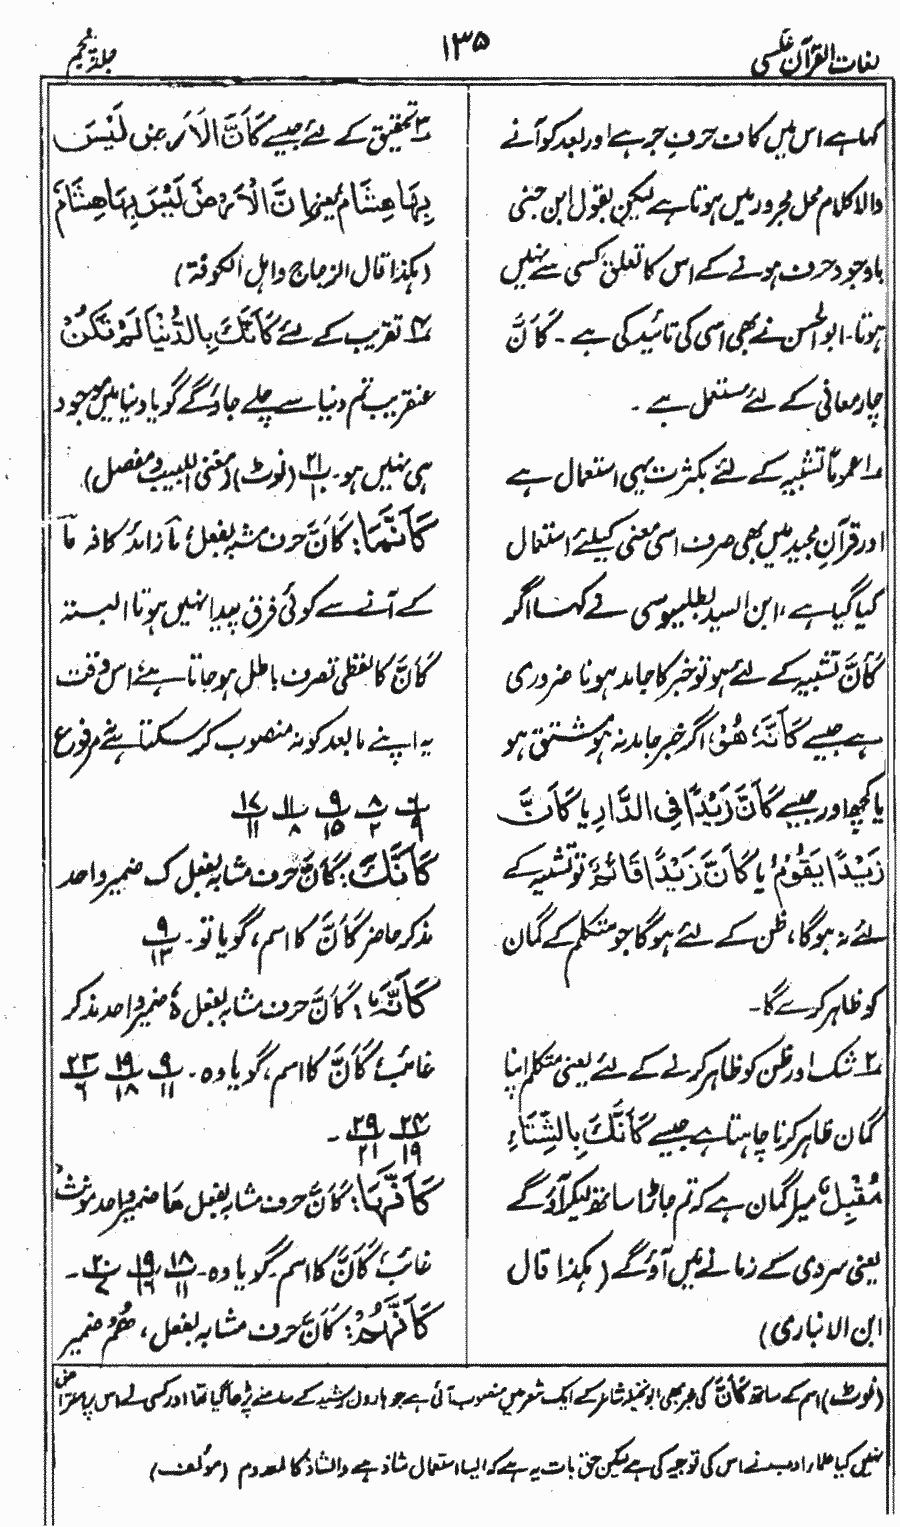 لغات القرآن عکسی
۱۳۵
جلد پنجم
کہا ہے اس میں کاف حرفِ جر ہے اور بعد کو آنے
والا کلام محل مجرور میں ہوتا ہے لیکن بقول ابن جنی
باوجود حرف ہونے کے اس کا تعلق کسی سے نہیں
ہوتا۔ ابو الحسن نے بھی اسی کی تائید کی ہے ۔ کَاَنَّ
چار معانی کے لئے مستعمل ہے ۔
۱ عموماً تشبیہ کے لئے بکثرت یہی استعمال ہے
اور قرآن مجید میں بھی صرف اسی معنی کیلئے استعمال
کیا گیا ہے، ابن السید بطلیوسی نے کہا اگر
کَاَنَّ تشبیہ کے لئے ہو تو خبر کا جامد ہونا ضروری
ہے جیسے کَاَنَّہٗ ھُوَ، اگر خبر جامد نہ ہو مشتق ہو
یا کچھ اور جیسے کَاَنَّ زَیْدًا فِی الدَّارِ یا کَاَنَّ
زَیْدًا یَقُوْمُ یا کَاَنَّ زَیْدًا قَائِمٌ تو تشبیہ کے
لئے نہ ہوگا، ظن کے لئے ہوگا جو متکلم کے گمان
کو ظاہر کرے گا۔
۲ شک اور ظن کو ظاہر کرنے کے لئے یعنی متکلم اپنا
گمان ظاہر کرنا چاہتا ہے جیسے کَاَنَّکَ بِالشِّتَاءِ
مُقْبِلٌ میرا گمان ہے کہ تم جاڑا ساتھ لیکر آؤ گے
یعنی سردی کے زمانے میں آؤ گے (ہکذا قال
ابن الانباری)
۳ تحقیق کے لئے جیسے کَاَنَّ الْاَرْضَ لَیْسَ
بِہَا ھِشَامٌ یعنی اِنَّ الْاَرْضَ لَیْسَ بِہَا ھِشَامٌ
(ہکذا قال الزجاج واہل الکوفۃ)
۴ تقریب کے لئے کَاَنَّکَ بِالدُّنْیَا لَمْ تَکُنْ
عنقریب تم دنیا سے چلے جاؤ گے گویا دنیا میں موجود
ہی نہیں ہو۔ پ ۲۱ ۱ (نوٹ) (مغنی اللبیب و مفصل)۔
کَاَنَّمَا: کَاَنَّ حرف مشبہ بفعل؛ مَا زائد کافہ مَا
کے آنے سے کوئی فرق پیدا نہیں ہوتا البتہ
کَاَنَّ کا لفظی تصرف باطل ہو جاتا ہے، اس وقت
یہ اپنے ما بعد کو نہ منصوب کر سکتا ہے نہ مرفوع
۶ ۹ ۸ ۲ ۹ ۱۵ ۱۱ ۸ ۱۷ ۱۱
کَاَنَّکَ: کَاَنَّ حرف مشابہ بفعل ک ضمیر واحد
مذکر حاضر کَاَنَّ کا اسم، گویا تو۔ ۹ ۱۳
کَاَنَّہٗ: کَاَنَّ حرف مشابہ بفعل ہٗ ضمیر واحد مذکر
غائب کَاَنَّ کا اسم، گویا وہ۔ ۹ ۱۱ ۱۹ ۱۸ ۲۳ ۶
۲۴ ۱۹ ۲۹ ۲۱ ۔
کَاَنَّہَا: کَاَنَّ حرف مشابہ بفعل ھَا ضمیر واحد مونث
غائب کَاَنَّ کا اسم۔ گویا وہ۔ ۱۸ ۱۱ ۱۹ ۱۶ ۲۰ ۷ ۔
کَاَنَّہُمْ: کَاَنَّ حرف مشابہ بفعل، ھُمْ ضمیر
(نوٹ) اسم کے ساتھ کَاَنَّ کی خبر بھی ابو نخیلہ شاعر کے ایک شعر میں منصوب آئی ہے جو ہارون رشید کے سامنے پڑھا گیا تھا اور کسی نے اس پر اعتراض
نہیں کیا علماء ادب نے اس کی توجیہ کی ہے لیکن حق بات یہ ہے کہ ایسا استعمال شاذ ہے والشاذ کالمعدوم (مؤلف)